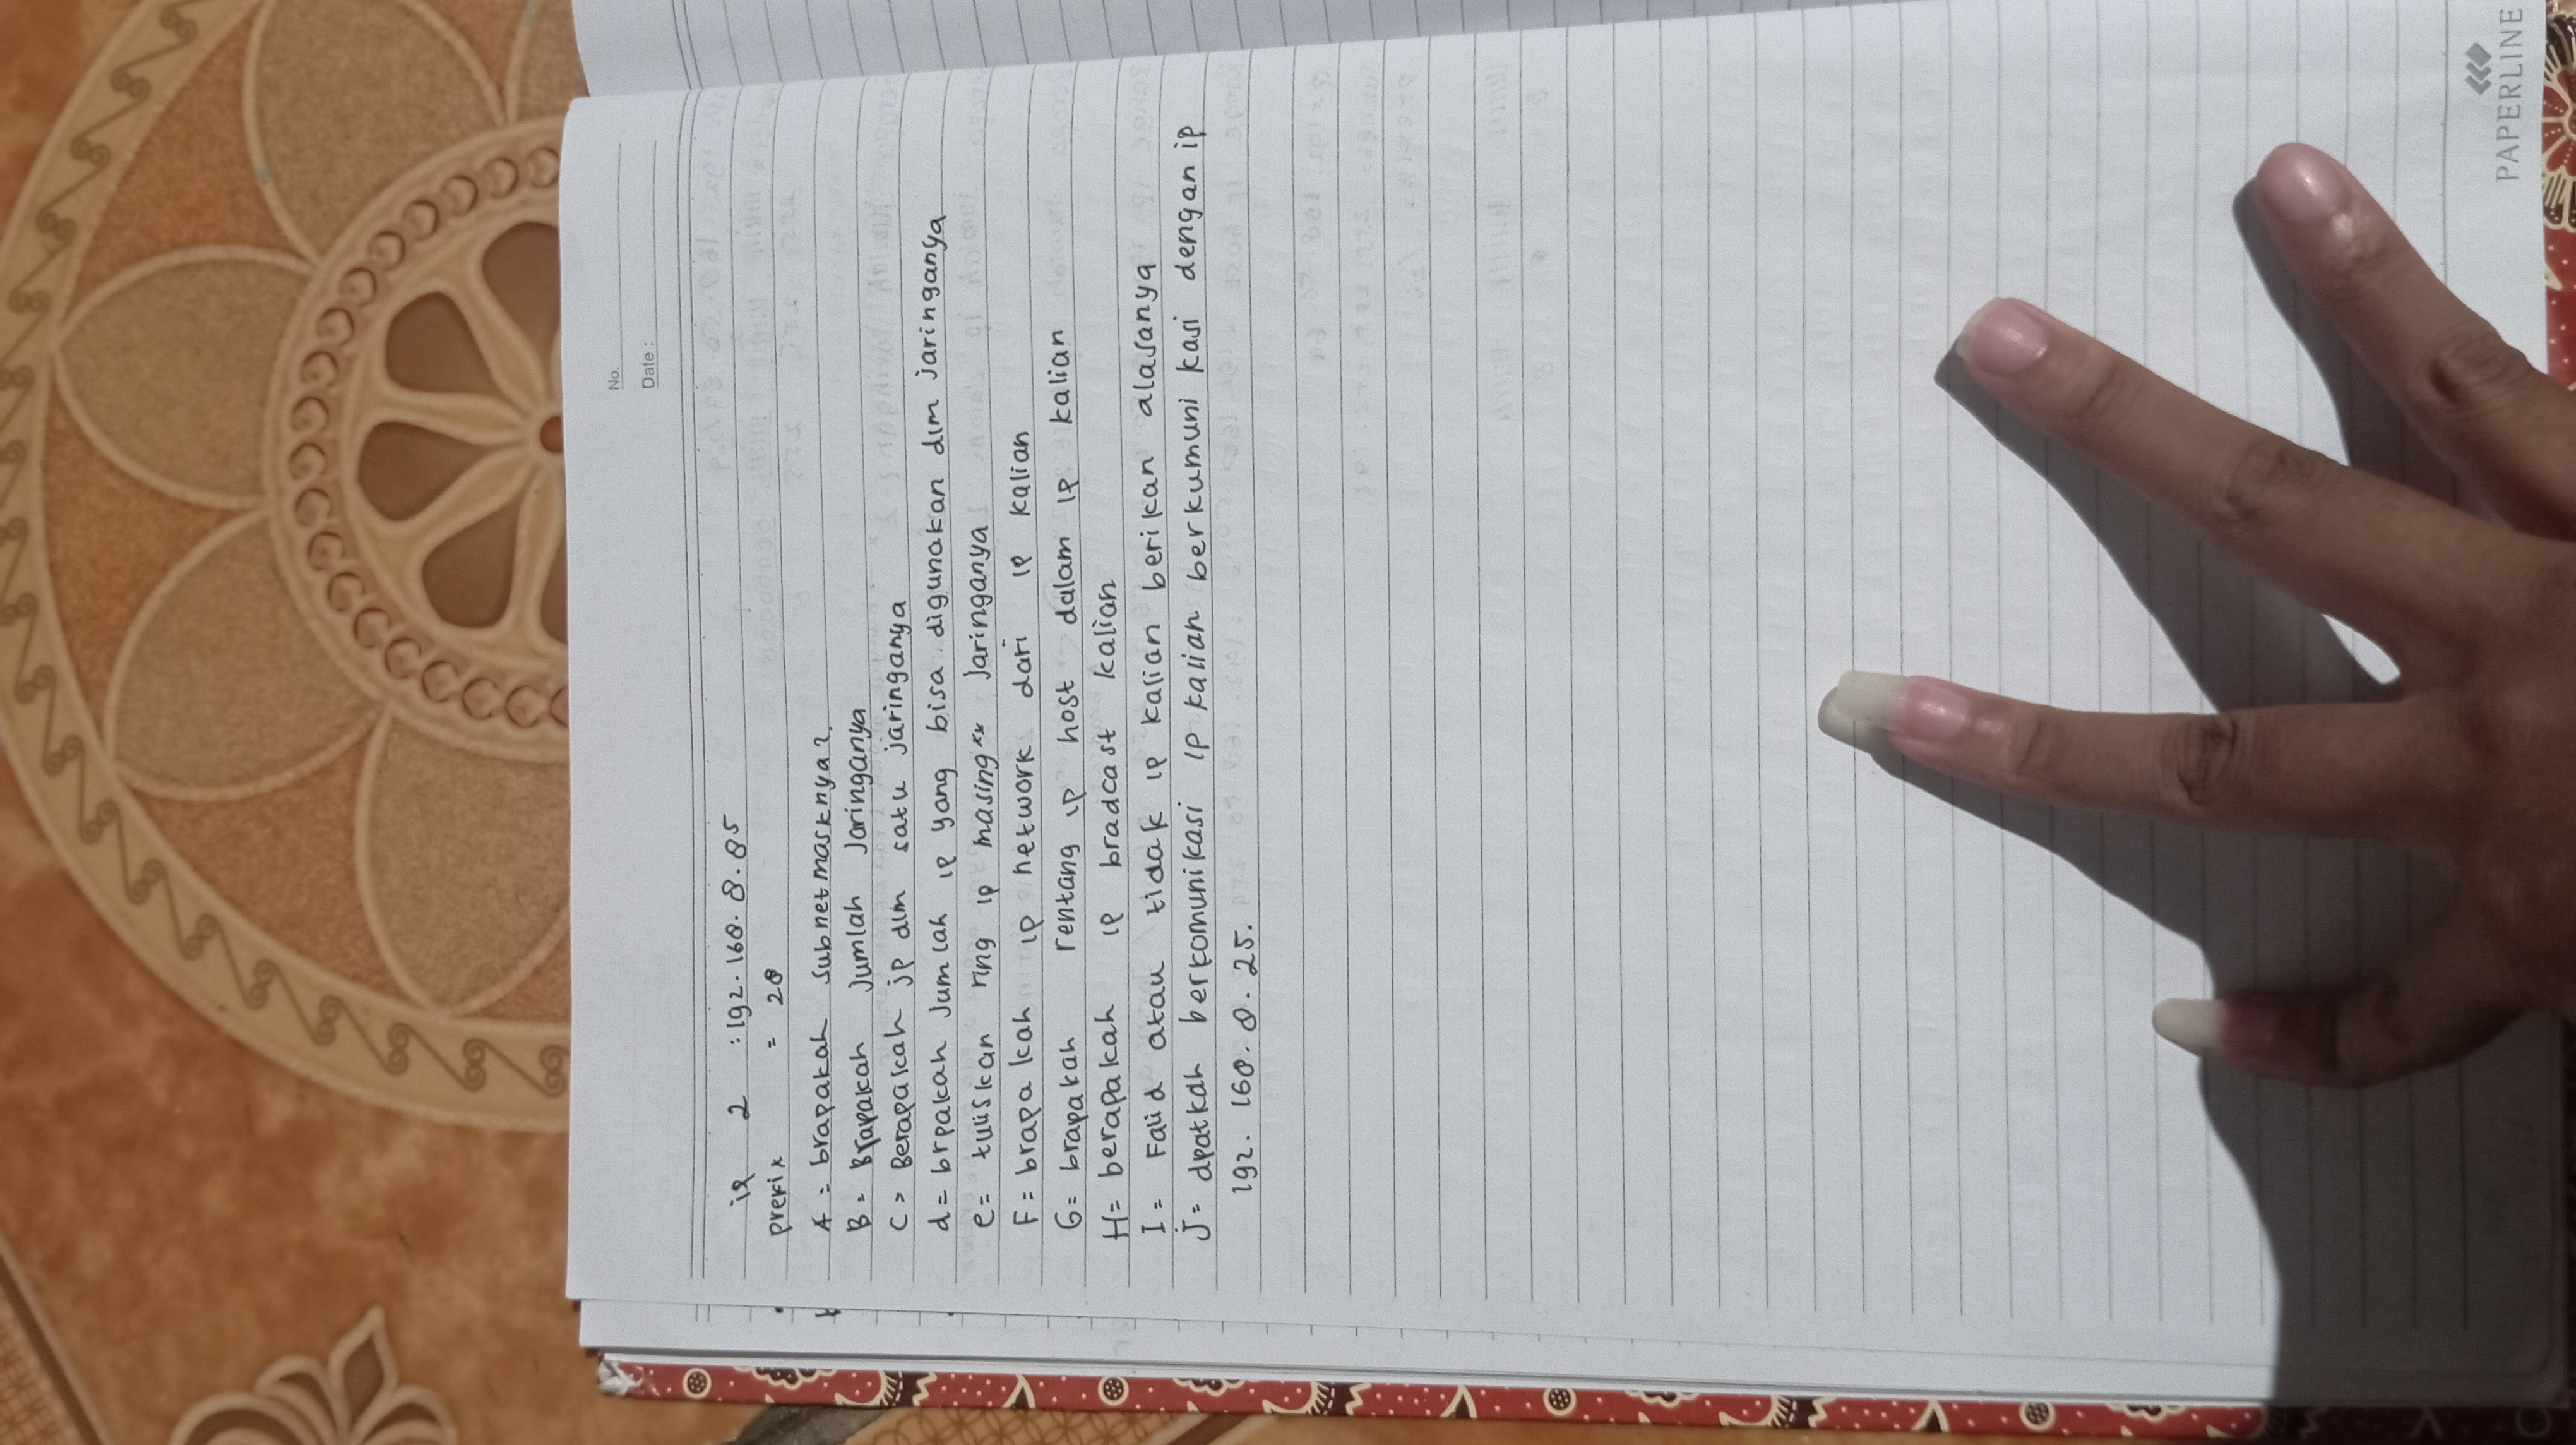 No.
Date :
ip 2 : 192. 168. 8. 85
prefix = 28
A = brapakah subnetmasknya?
B = Brapakah Jumlah Jaringanya
C = Berapakah ip dlm satu jaringanya
d = brpakah Jumlah ip yang bisa digunakan dlm jaringanya
e = tuliskan ring ip masing** Jaringanya
F = brapakah ip network dari ip kalian
G = brapakah rentang ip host dalam ip kalian
H = berapakah ip bradcast kalian
I = Falid atau tidak ip kalian berikan alasanya
J = dpatkah berkomunikasi ip kalian berkumunikasi dengan ip
192. 168. 8. 25.
PAPERLINE